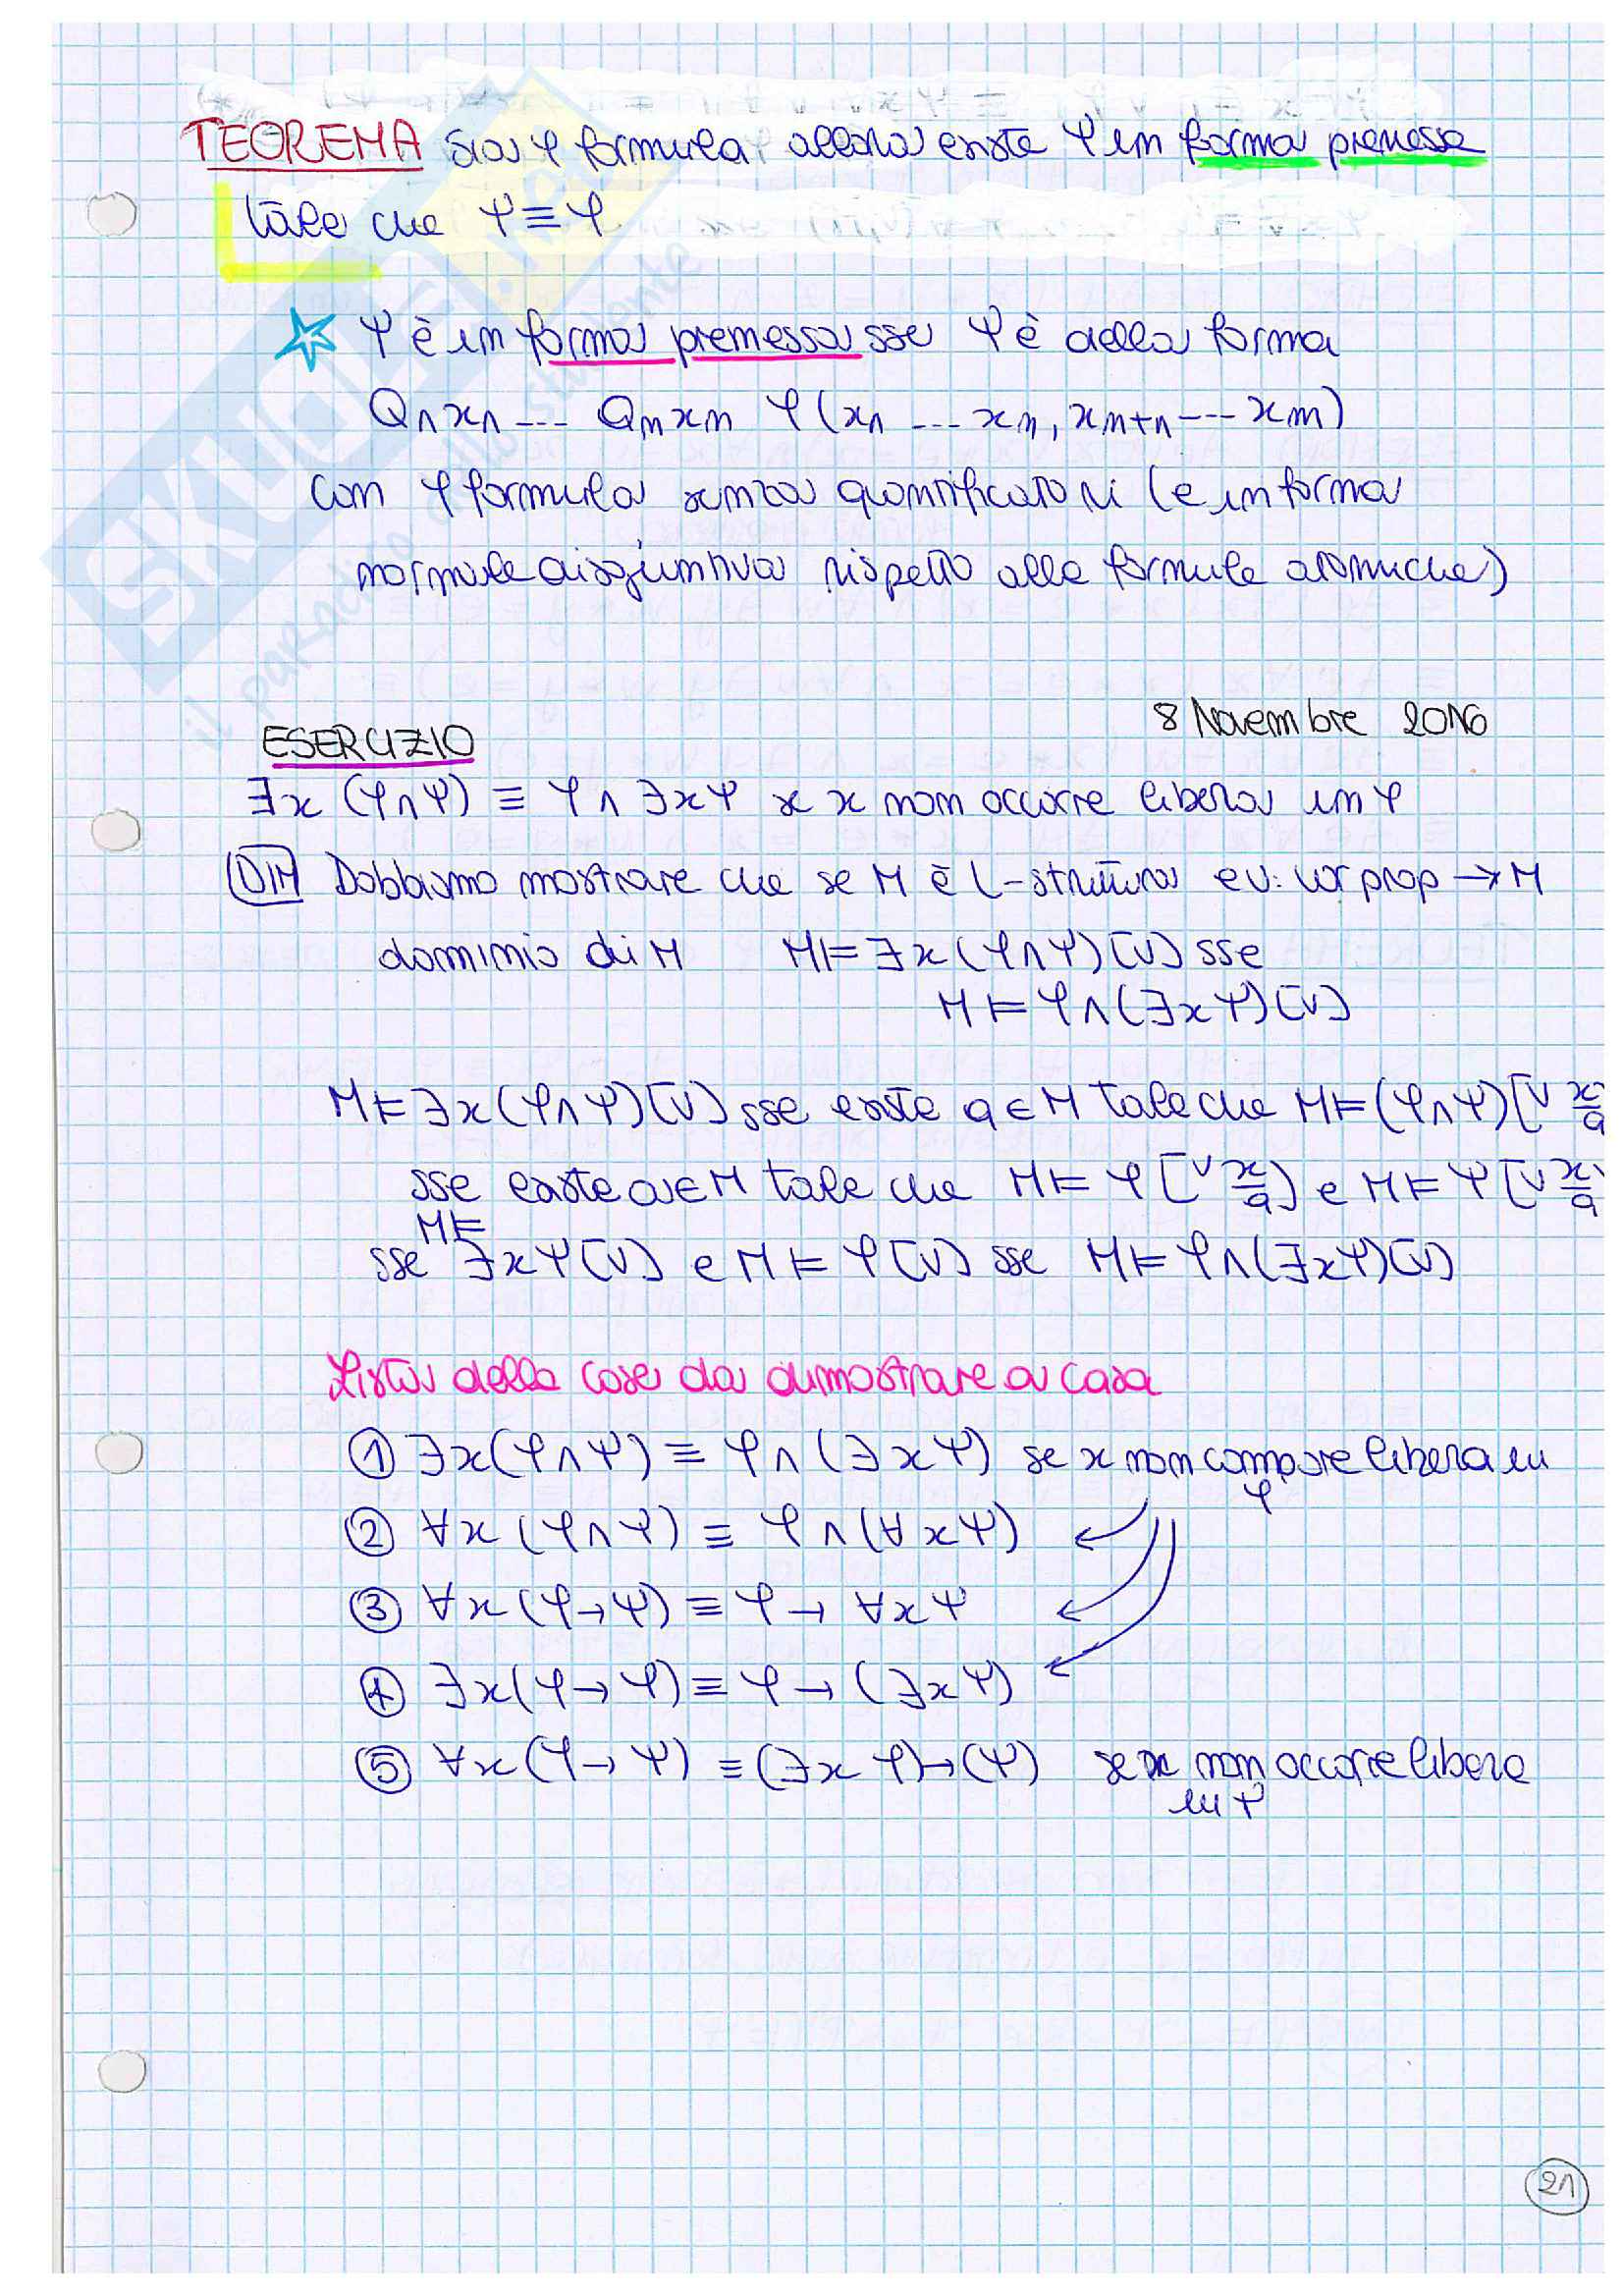 TEOREMA sia φ formula, allora esiste ψ in forma premessa
tale che ψ ≡ φ
ψ è in forma premessa sse ψ è della forma
Q₁x₁ --- Qₙxₙ φ(x₁ --- xₙ, xₙ₊₁ --- xₘ)
con φ formula senza quantificatori (e in forma
normale disgiuntiva rispetto alle formule atomiche)
8 Novembre 2016
ESERCIZIO
∃x (φ∧ψ) ≡ φ∧∃xψ se x non occorre libera in φ
DIM Dobbiamo mostrare che se M è L-struttura e v: var prop → M
dominio di M M⊨∃x(φ∧ψ)[v] sse
M⊨φ∧(∃xψ)[v]
M⊨∃x(φ∧ψ)[v] sse esiste a∈M tale che M⊨(φ∧ψ)[v x/a
sse esiste a∈M tale che M⊨φ[v x/a] e M⊨ψ[v x/a
M⊨
sse ∃xψ[v] e M⊨φ[v] sse M⊨φ∧(∃xψ)[v]
Lista delle cose da dimostrare a casa
① ∃x(φ∧ψ) ≡ φ∧(∃xψ) se x non compare libera in
φ
② ∀x(φ∧ψ) ≡ φ∧(∀xψ)
③ ∀x(φ→ψ) ≡ φ→ ∀xψ
④ ∃x(φ→ψ) ≡ φ→ (∃xψ)
⑤ ∀x(φ→ψ) ≡ (∃xφ)→(ψ) se x non occorre libera
in ψ
21
SKUOLA.net
il paradiso dello studente